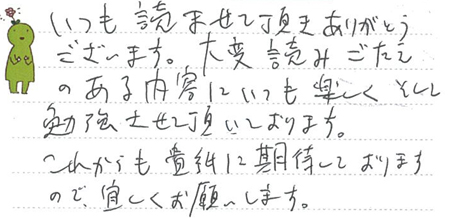 いつも読ませて頂きありがとう
ございます。大変読みごたえ
のある内容にいつも楽しくそして
勉強させて頂いております。
これからも貴紙に期待しております
ので、宜しくお願いします。